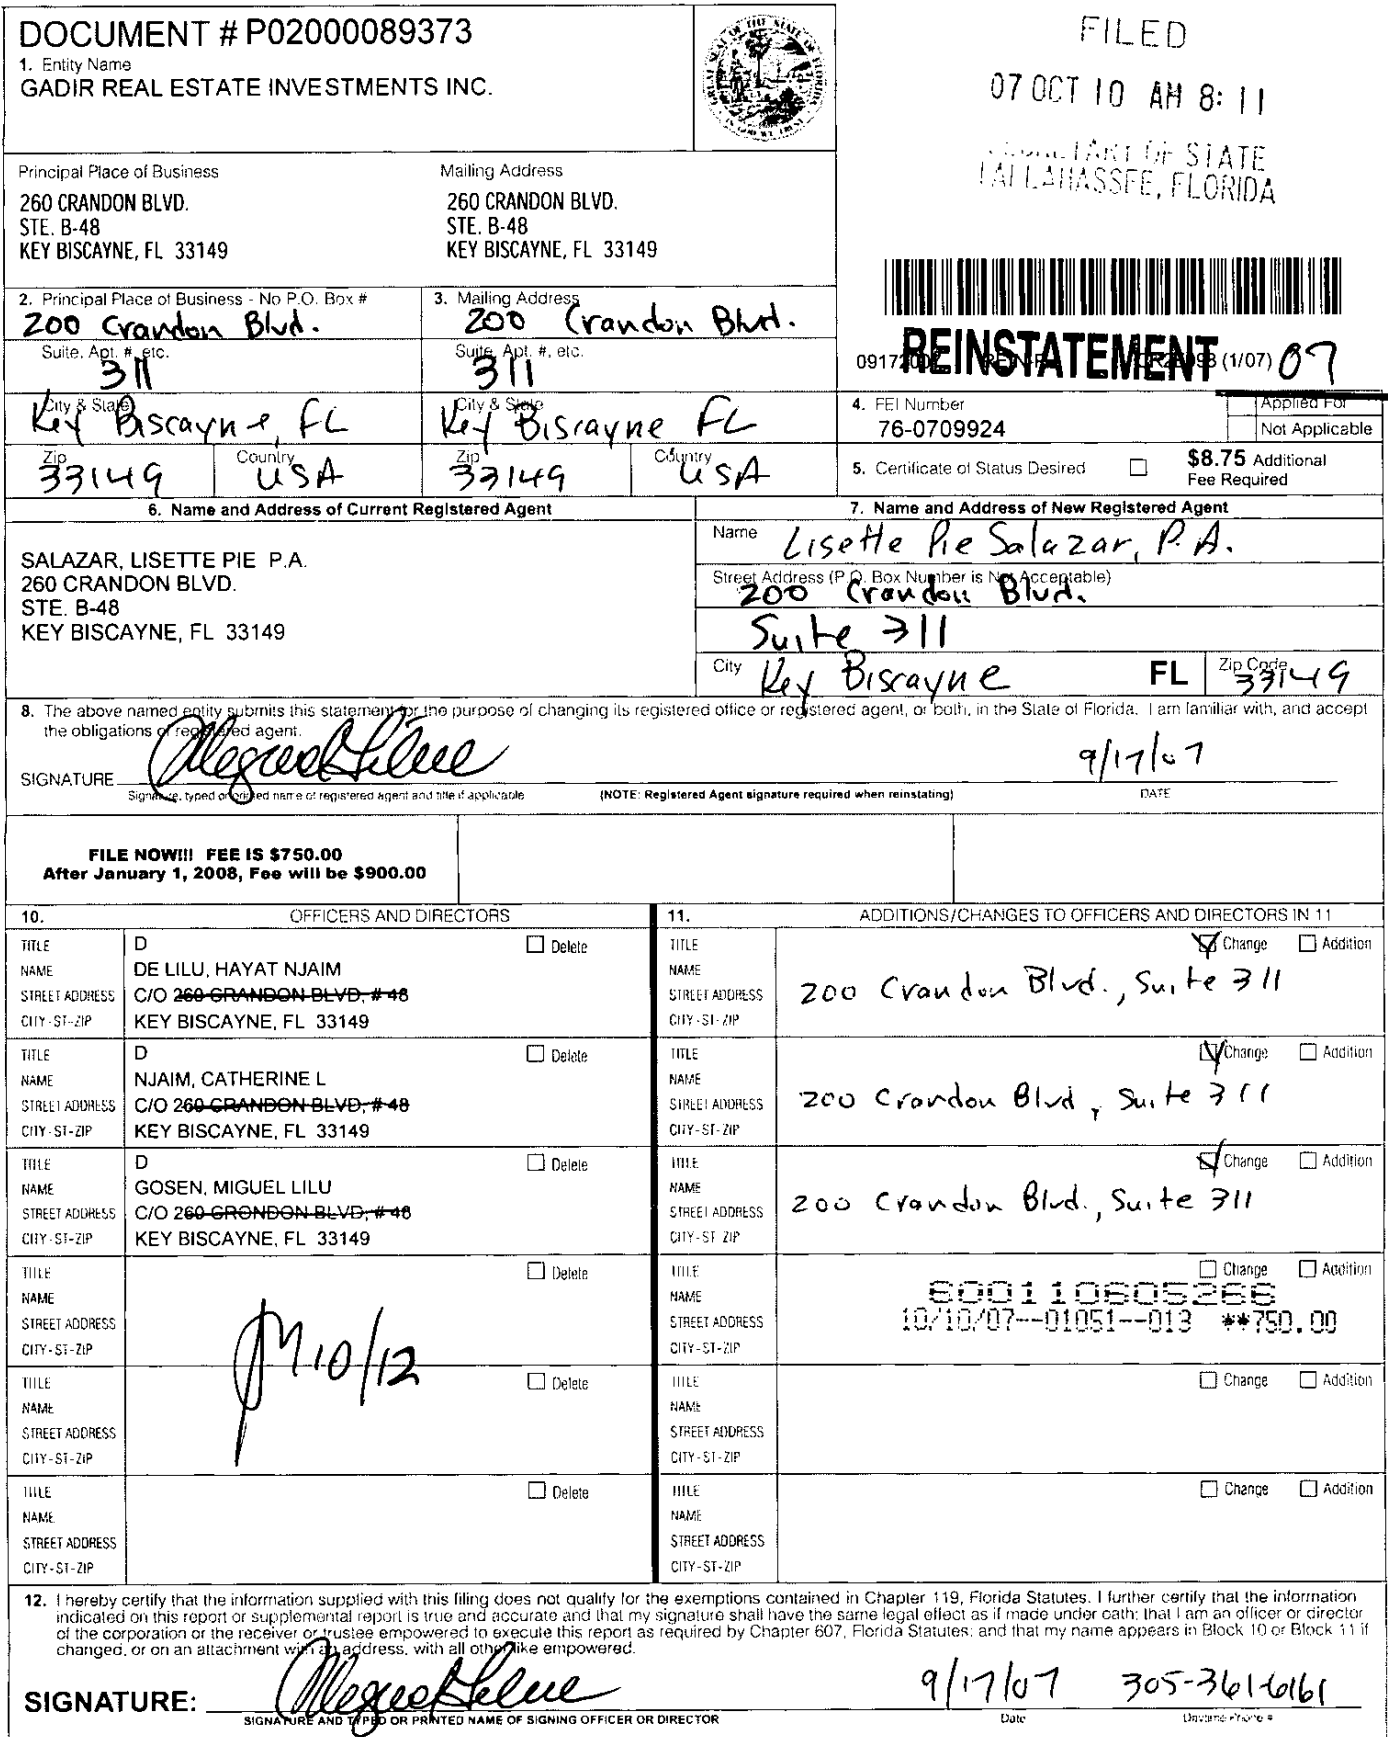 DOCUMENT # P02000089373
1. Entity Name
GADIR REAL ESTATE INVESTMENTS INC.
FILED
07 OCT 10 AM 8: 11
OF STATE
TALLAHASSEE, FLORIDA
Principal Place of Business
260 CRANDON BLVD.
STE. B-48
KEY BISCAYNE, FL 33149
Mailing Address
260 CRANDON BLVD.
STE. B-48
KEY BISCAYNE, FL 33149
2. Principal Place of Business - No P.O. Box #
200 Crandon Blvd.
Suite, Apt. #, etc.
311
City & State
Key Biscayne, FL
Zip
33149
Country
USA
3. Mailing Address
200 Crandon Blvd.
Suite, Apt. #, etc.
311
City & State
Key Biscayne FL
Zip
33149
Country
USA
REINSTATEMENT
(1/07) 07
4. FEI Number
76-0709924
Applied For
Not Applicable
5. Certificate of Status Desired
$8.75 Additional
Fee Required
6. Name and Address of Current Registered Agent
SALAZAR, LISETTE PIE P.A.
260 CRANDON BLVD.
STE. B-48
KEY BISCAYNE, FL 33149
7. Name and Address of New Registered Agent
Name Lisette Pie Salazar, P.A.
Street Address (P.O. Box Number is Not Acceptable)
200 Crandon Blvd.
Suite 311
City Key Biscayne FL Zip Code 33149
8. The above named entity submits this statement for the purpose of changing its registered office or registered agent, or both, in the State of Florida. I am familiar with, and accept
the obligations of registered agent.
SIGNATURE 9/17/07
Signature, typed or printed name of registered agent and title if applicable (NOTE: Registered Agent signature required when reinstating) DATE
FILE NOW!!! FEE IS $750.00
After January 1, 2008, Fee will be $900.00
10. OFFICERS AND DIRECTORS
TITLE D Delete
NAME DE LILU, HAYAT NJAIM
STREET ADDRESS C/O 260 CRANDON BLVD, # 48
CITY-ST-ZIP KEY BISCAYNE, FL 33149
TITLE D Delete
NAME NJAIM, CATHERINE L
STREET ADDRESS C/O 260 CRANDON BLVD, # 48
CITY-ST-ZIP KEY BISCAYNE, FL 33149
TITLE D Delete
NAME GOSEN, MIGUEL LILU
STREET ADDRESS C/O 260 GRONDON BLVD, # 48
CITY-ST-ZIP KEY BISCAYNE, FL 33149
TITLE Delete
NAME
STREET ADDRESS
CITY-ST-ZIP
10/12
TITLE Delete
NAME
STREET ADDRESS
CITY-ST-ZIP
TITLE Delete
NAME
STREET ADDRESS
CITY-ST-ZIP
11. ADDITIONS/CHANGES TO OFFICERS AND DIRECTORS IN 11
TITLE Change Addition
NAME
STREET ADDRESS 200 Crandon Blvd., Suite 311
CITY-ST-ZIP
TITLE Change Addition
NAME
STREET ADDRESS 200 Crandon Blvd, Suite 311
CITY-ST-ZIP
TITLE Change Addition
NAME
STREET ADDRESS 200 Crandon Blvd., Suite 311
CITY-ST-ZIP
TITLE Change Addition
NAME 600110605266
STREET ADDRESS 10/10/07--01051--013 **750.00
CITY-ST-ZIP
TITLE Change Addition
NAME
STREET ADDRESS
CITY-ST-ZIP
TITLE Change Addition
NAME
STREET ADDRESS
CITY-ST-ZIP
12. I hereby certify that the information supplied with this filing does not qualify for the exemptions contained in Chapter 119, Florida Statutes. I further certify that the information
indicated on this report or supplemental report is true and accurate and that my signature shall have the same legal effect as if made under oath; that I am an officer or director
of the corporation or the receiver or trustee empowered to execute this report as required by Chapter 607, Florida Statutes; and that my name appears in Block 10 or Block 11 if
changed, or on an attachment with an address, with all other like empowered.
SIGNATURE: 9/17/07 305-361-6161
SIGNATURE AND TYPED OR PRINTED NAME OF SIGNING OFFICER OR DIRECTOR Date Daytime Phone #